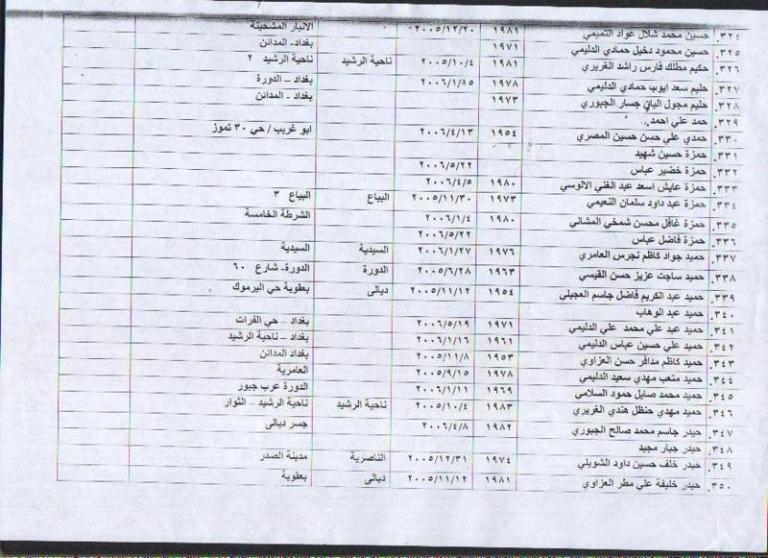 ٣٢٤. حسين محمد شلال عواد التميمي ١٩٨١ ٢٠٠٥/١٢/٢٠ الانبار المشحينة
٣٢٥. حسين محمود دخيل حمادي الدليمي ١٩٧١ بغداد- المدائن
٣٢٦. حكيم مطلك فارس راشد الغريري ١٩٨١ ٢٠٠٥/١٠/٤ ناحية الرشيد ناحية الرشيد ٢
٣٢٧. حليم سعد ايوب حمادي الدليمي ١٩٧٨ بغداد – الدورة
٣٢٨. حليم مجول البان جسار الجبوري ١٩٧٣ بغداد - المدائن
٣٢٩. حمد علي احمد
٣٣٠. حمدي علي حسن حسين المصري ١٩٥٤ ٢٠٠٦/٤/١٣ ابو غريب / حي ٣٠ تموز
٣٣١. حمزة حسين شهيد
٣٣٢. حمزة خضير عباس ٢٠٠٦/٥/٢٢
٣٣٣. حمزة عايش اسعد عبد الغني الالوسي ١٩٨٠ ٢٠٠٦/٤/٥
٣٣٤. حمزة عبد داود سلمان النعيمي ١٩٧٣ ٢٠٠٥/١١/٣٠ البياع البياع ٣
٣٣٥. حمزة غافل محسن شمخي المشاني ١٩٨٠ ٢٠٠٦/١/٤ الشرطة الخامسة
٣٣٦. حمزة فاضل عباس ٢٠٠٦/٥/٢٢
٣٣٧. حميد جواد كاظم نجرس العامري ١٩٧٦ ٢٠٠٦/١/٢٧ السيدية السيدية
٣٣٨. حميد ساجت عزيز حسن القيسي ١٩٦٣ ٢٠٠٥/٦/٢٨ الدورة الدورة- شارع ٦٠
٣٣٩. حميد عبد الكريم فاضل جاسم العجيلي ١٩٥٤ ٢٠٠٥/١١/١٢ ديالى بعقوبة حي اليرموك
٣٤٠. حميد عبد الوهاب
٣٤١. حميد عبد علي محمد علي الدليمي ١٩٧١ ٢٠٠٦/٥/١٩ بغداد – حي الفرات
٣٤٢. حميد علي حسين عباس الدليمي ١٩٦١ ٢٠٠٦/١/١٦ بغداد – ناحية الرشيد
٣٤٣. حميد كاظم مدافر حسن العزاوي ١٩٥٣ ٢٠٠٥/١١/٨ بغداد المدائن
٣٤٤. حميد متعب مهدي سعيد الدليمي ١٩٧٨ ٢٠٠٥/٩/١٥ العامرية
٣٤٥. حميد محمد صايل حمود السلامي ١٩٦٩ ٢٠٠٦/١/١١ الدورة عرب جبور
٣٤٦. حميد مهدي حنظل هندي الغريري ١٩٨٣ ٢٠٠٥/١٠/٤ ناحية الرشيد ناحية الرشيد – الثوار
٣٤٧. حيدر جاسم محمد صالح الجبوري ١٩٨٢ ٢٠٠٦/٤/٨ جسر ديالى
٣٤٨. حيدر جبار مجيد
٣٤٩. حيدر خلف حسين داود الشويلي ١٩٧٤ ٢٠٠٥/١٢/٣١ الناصرية مدينة الصدر
٣٥٠. حيدر خليفة علي مطر العزاوي ١٩٨١ ٢٠٠٥/١١/١٢ ديالى بعقوبة